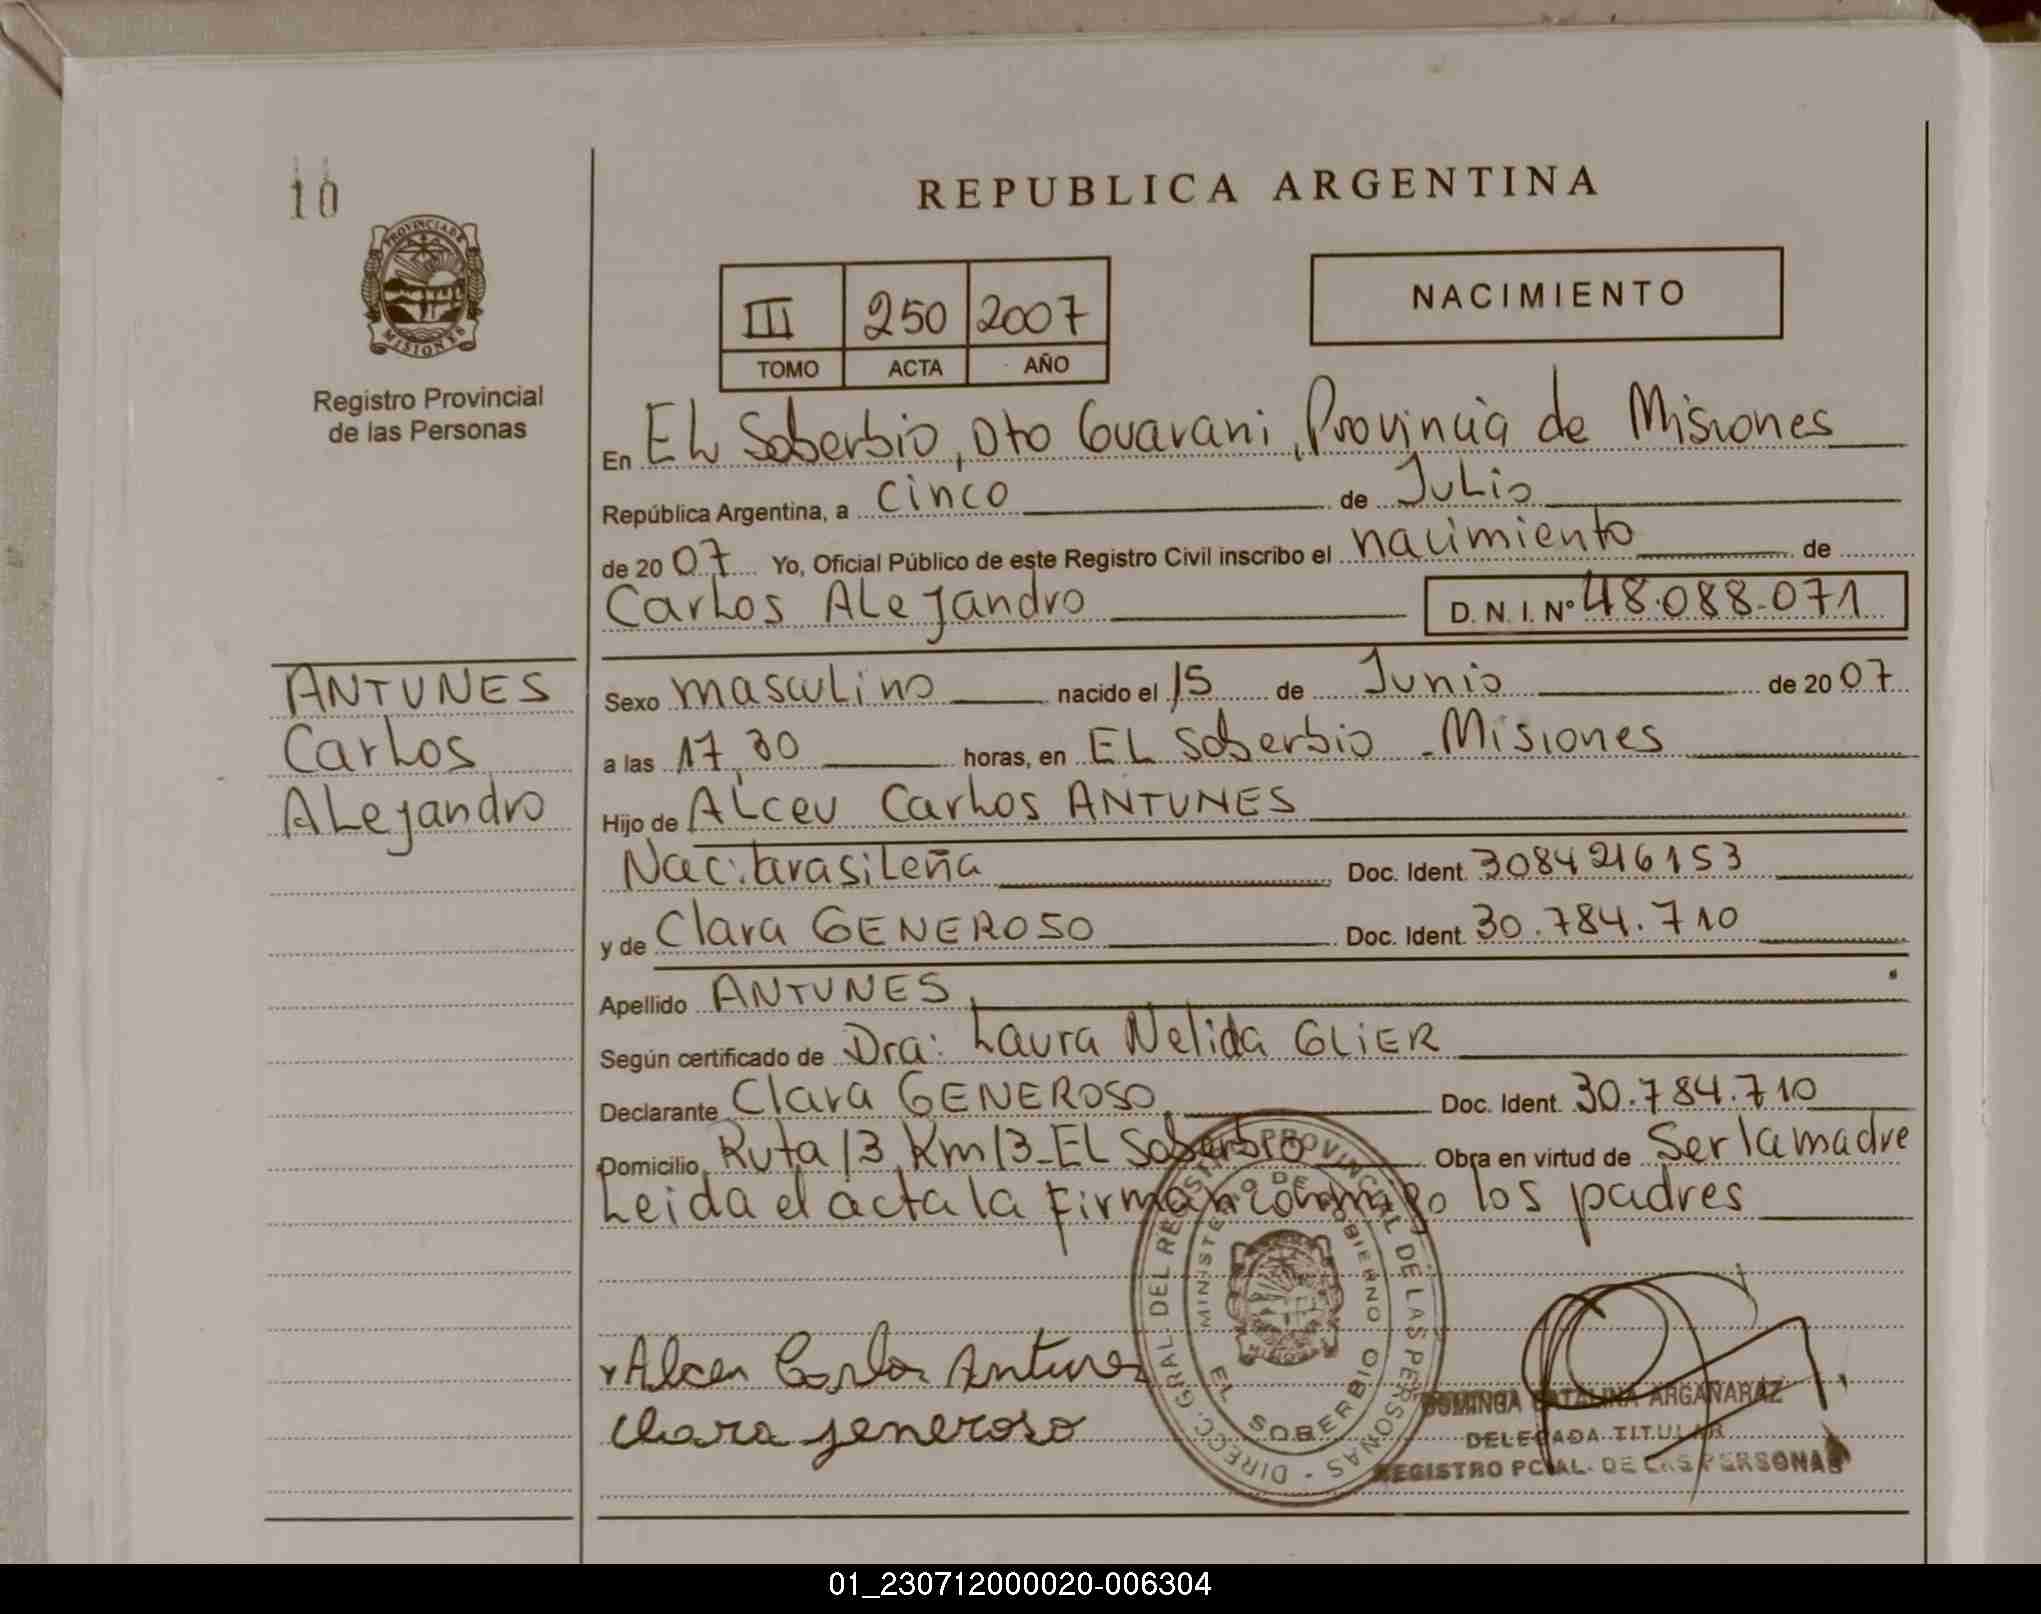 10
PROVINCIA DE
MISIONES
Registro Provincial
de las Personas
REPUBLICA ARGENTINA
III 250 2007
TOMO ACTA AÑO
NACIMIENTO
En EL Soberbio, Dto Guarani, Provincia de Misiones
República Argentina, a cinco de Julio
de 20 07 Yo, Oficial Público de este Registro Civil inscribo el nacimiento de
Carlos Alejandro D. N. I. Nº 48.088.071
ANTUNES
Carlos
Alejandro
Sexo masculino nacido el 15 de Junio de 20 07
a las 17,30 horas, en EL Soberbio - Misiones
Hijo de Alceu Carlos ANTUNES
Nac: brasileña Doc. Ident. 3084216153
y de Clara GENEROSO Doc. Ident. 30.784.710
Apellido ANTUNES
Según certificado de Dra: Laura Nelida GLIER
Declarante Clara GENEROSO Doc. Ident. 30.784.710
Domicilio Ruta 13 Km 13 - EL Soberbio Obra en virtud de Ser la madre
Leida el acta la firman conmigo los padres
DIRECC. GRAL. DEL REGISTRO PROVINCIAL DE LAS PERSONAS
MINISTERIO DE GOBIERNO
EL SOBERBIO
Alceu Carlos Antunes
Clara generoso
DOMINGA CATALINA ARGAÑARAZ
DELEGADA TITULAR
REGISTRO PCIAL. DE LAS PERSONAS
01_230712000020-006304